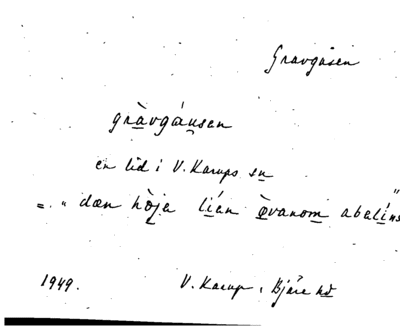 Gravgåsen
gràvgáusen
en lid i V. Karups sn
=. "dæn hòja lían òvanom abalíns"
1949. V. Karup, Bjäre hd